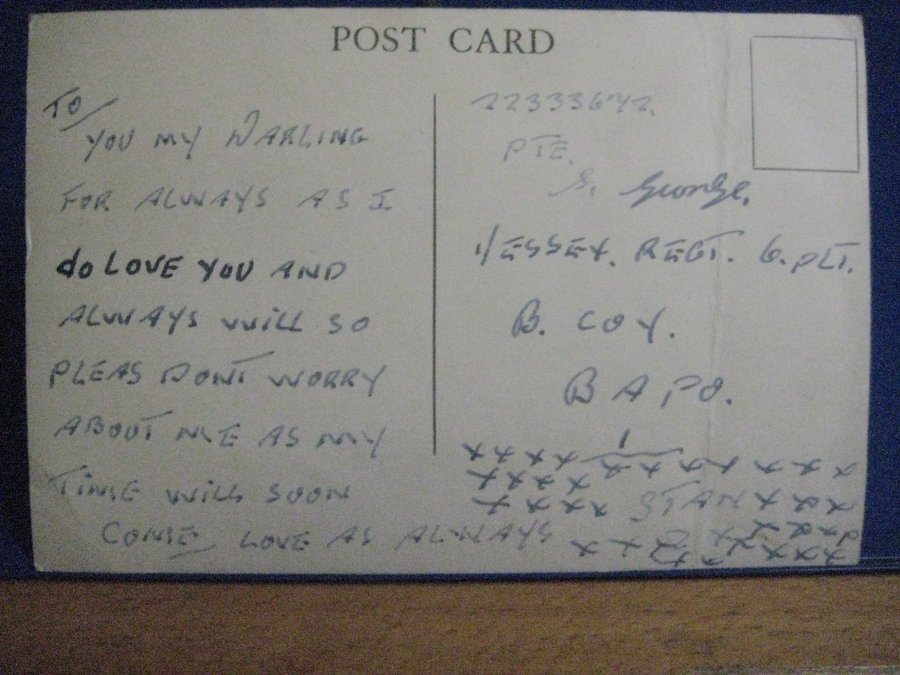 POST CARD
TO/
YOU MY DARLING
FOR ALWAYS AS I
do LOVE YOU AND
ALWAYS WILL SO
PLEAS DONT WORRY
ABOUT ME AS MY
TIME WILL SOON
COME LOVE AS ALWAYS
PTE.
S. George.
1/ESSEX. REGT. 6. PLT.
B. COY.
B A P O.
1
x x x x x x x x x x x
x x x x
x x x x STAN x x x x
x x x x
x x x x x x x x x